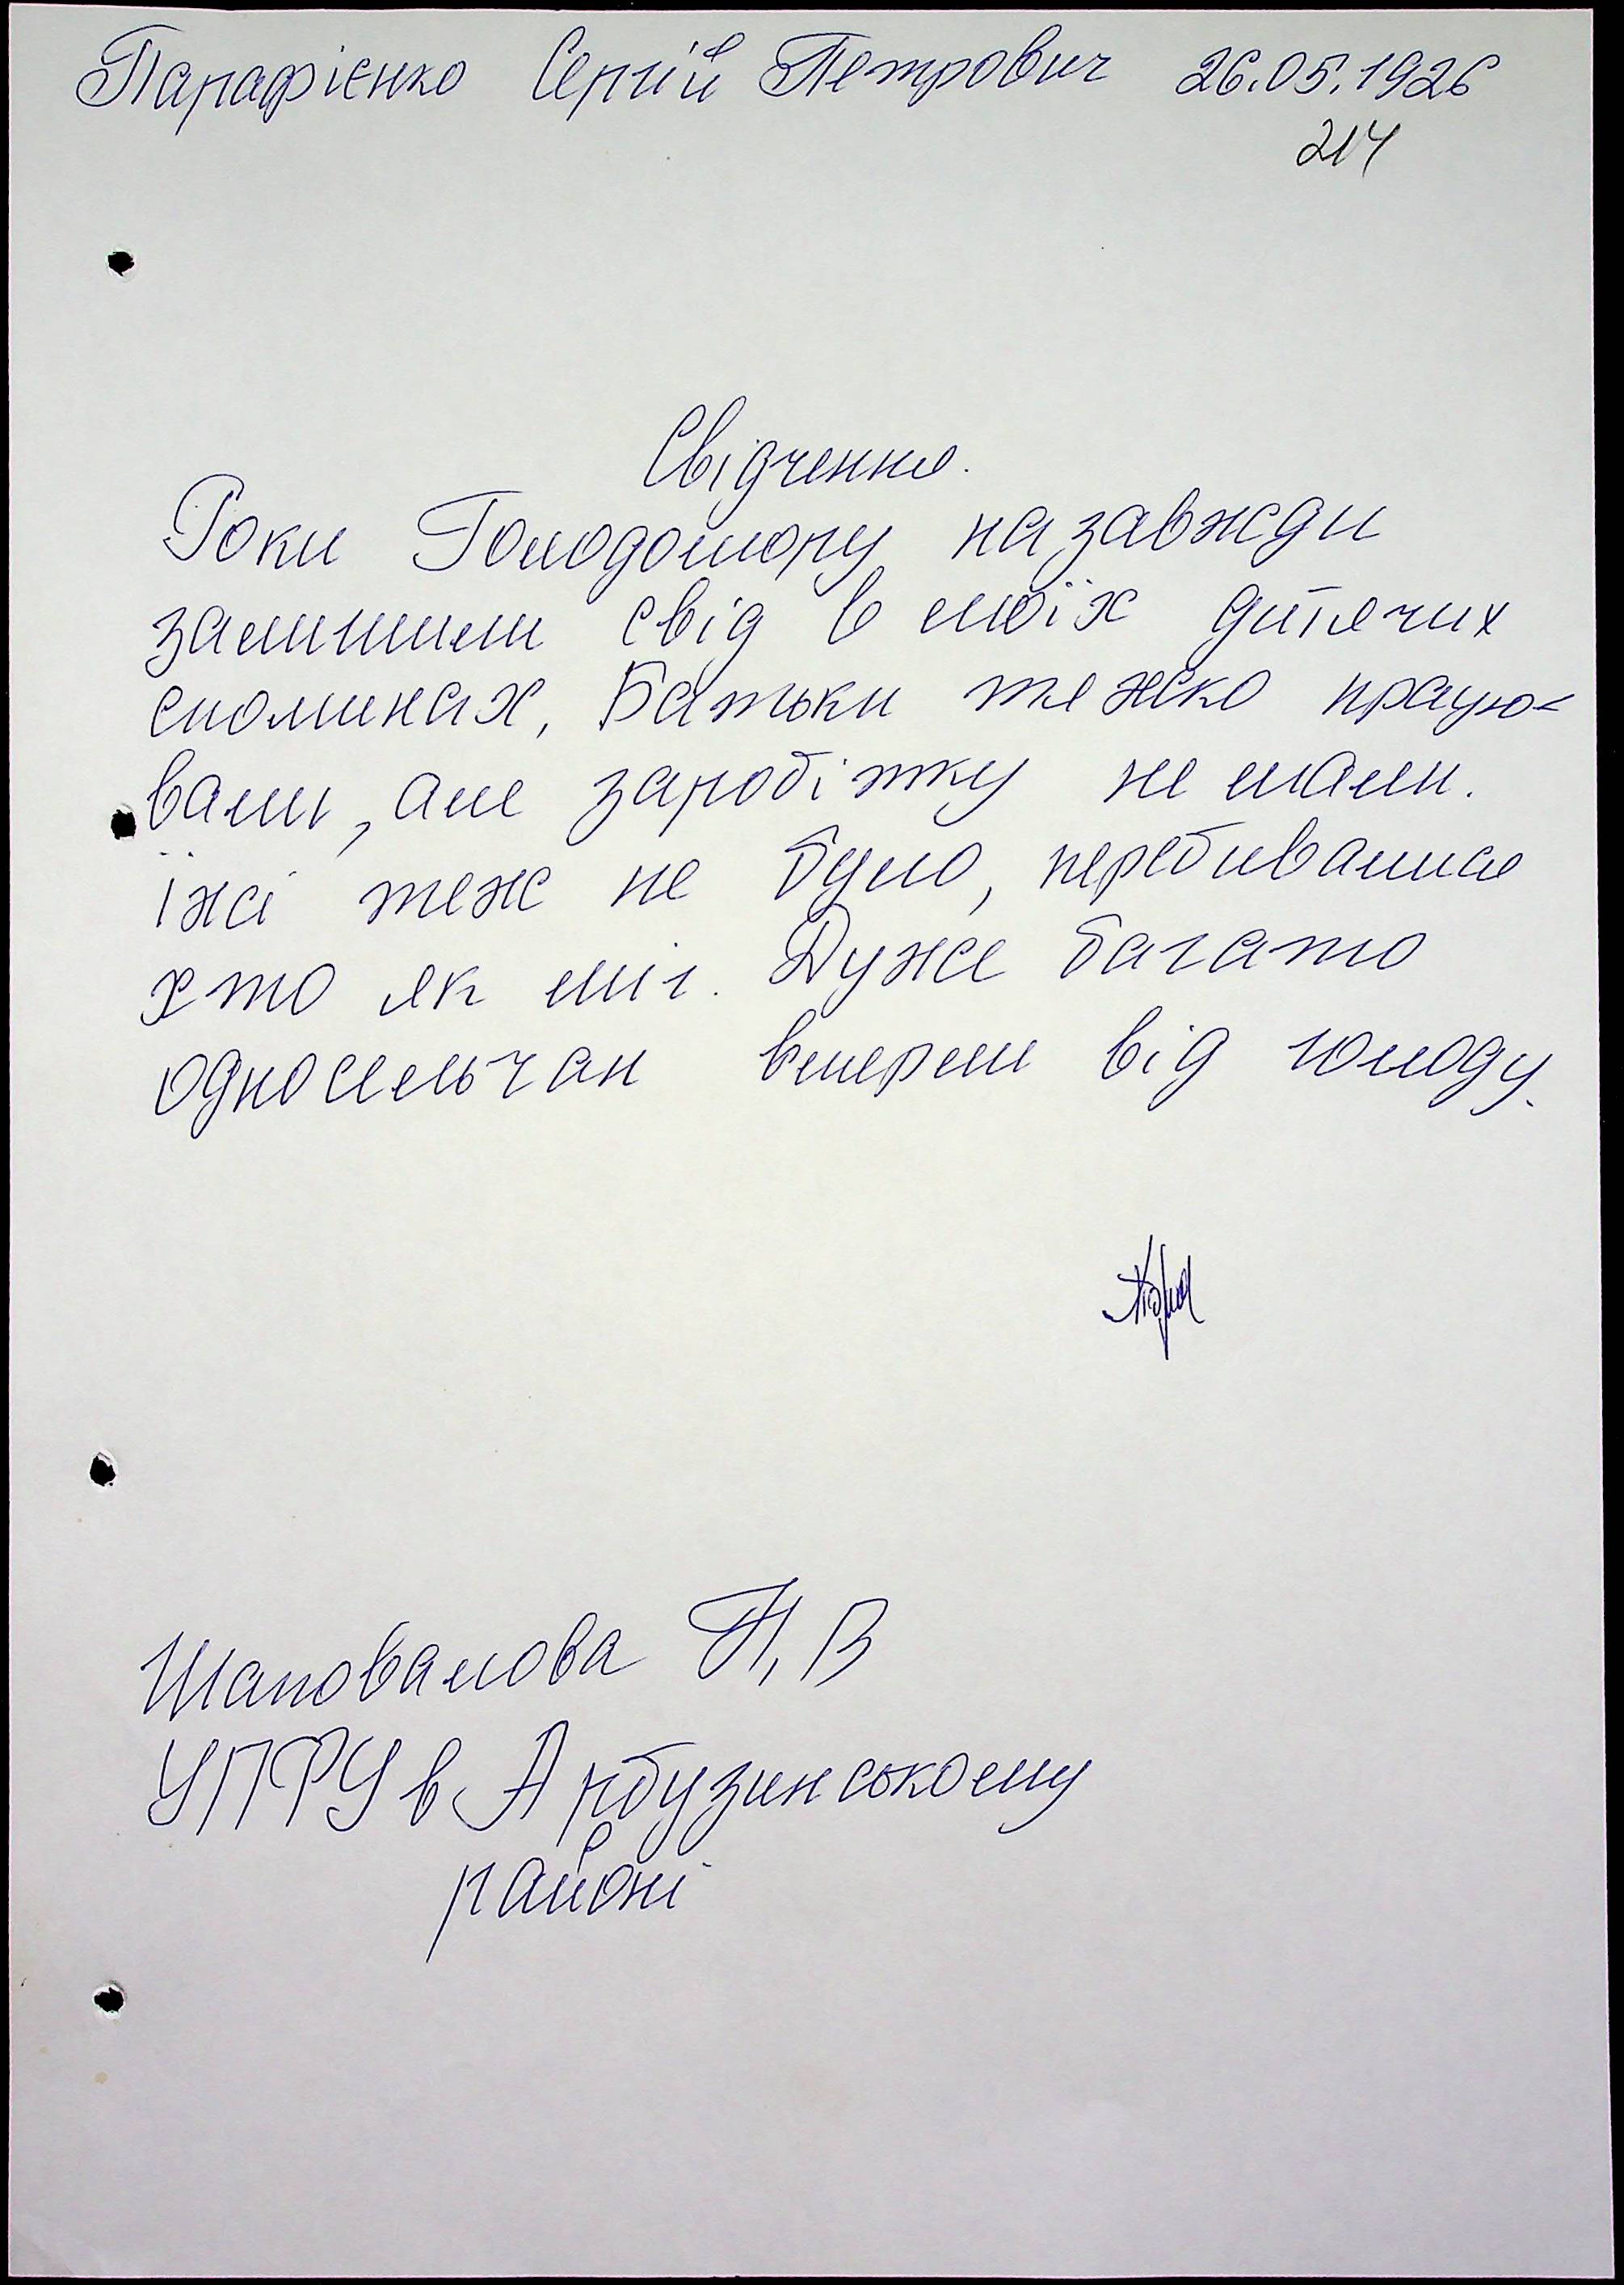 Парафієнко Сергій Петрович 26.05.1926
214
Свідчення.
Роки Голодомору назавжди
залишили свід в моїх дитячих
споминах, Батьки тяжко працю-
вали, але заробітку не мали.
їжі теж не було, перебивалися
хто як міг. Дуже багато
односельчан вмерли від голоду.
Шаповалова Н, В
УПФУ в Арбузинському
районі